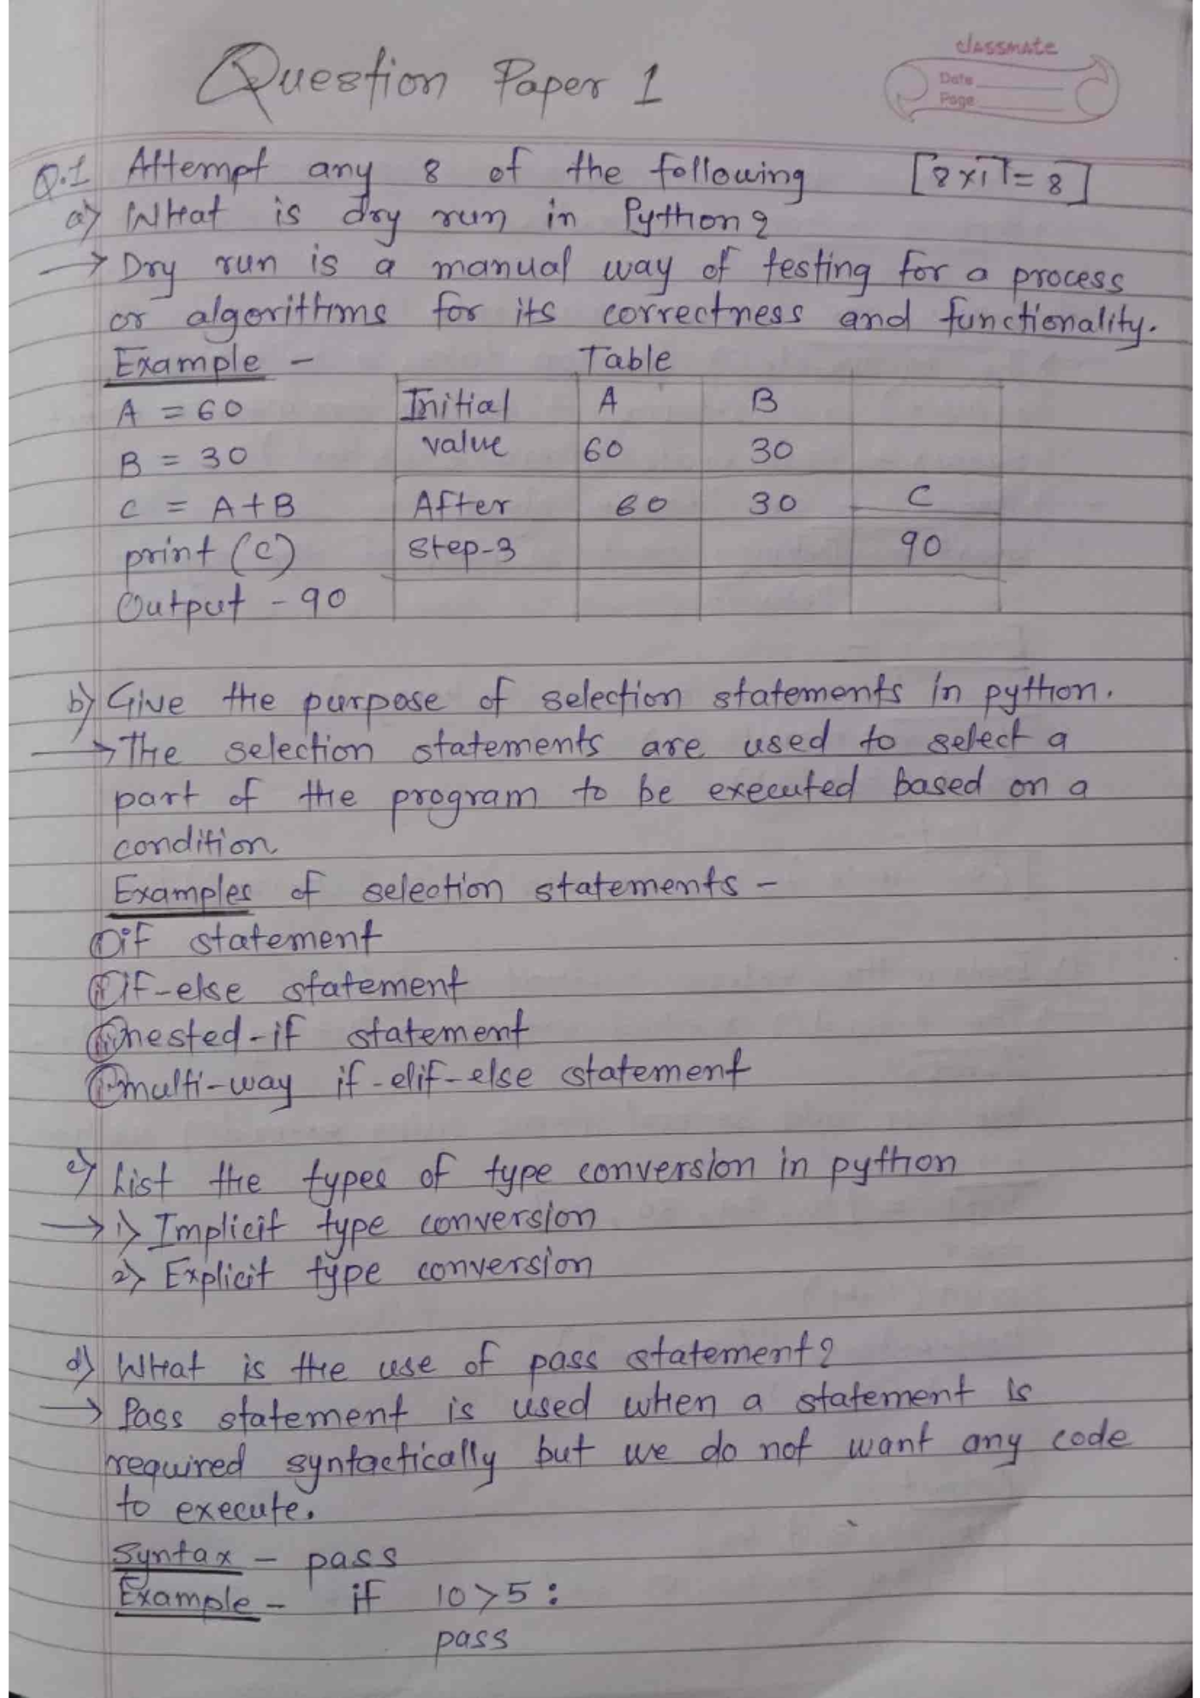 classmate
Date
Page
Question Paper 1
Q.1 Attempt any 8 of the following [8×1=8]
a) What is dry run in Python?
→ Dry run is a manual way of testing for a process
or algorithms for its correctness and functionality.
Example - Table
A = 60 Initial A B
B = 30 value 60 30
C = A+B After 60 30 C
print (C) Step-3 90
Output - 90
b) Give the purpose of selection statements in python.
→ The selection statements are used to select a
part of the program to be executed based on a
condition
Examples of selection statements -
i if statement
ii if-else statement
iii nested-if statement
iv multi-way if-elif-else statement
c) List the types of type conversion in python
→ 1) Implicit type conversion
2) Explicit type conversion
d) What is the use of pass statement?
→ Pass statement is used when a statement is
required syntactically but we do not want any code
to execute.
Syntax - pass
Example - if 10>5:
pass